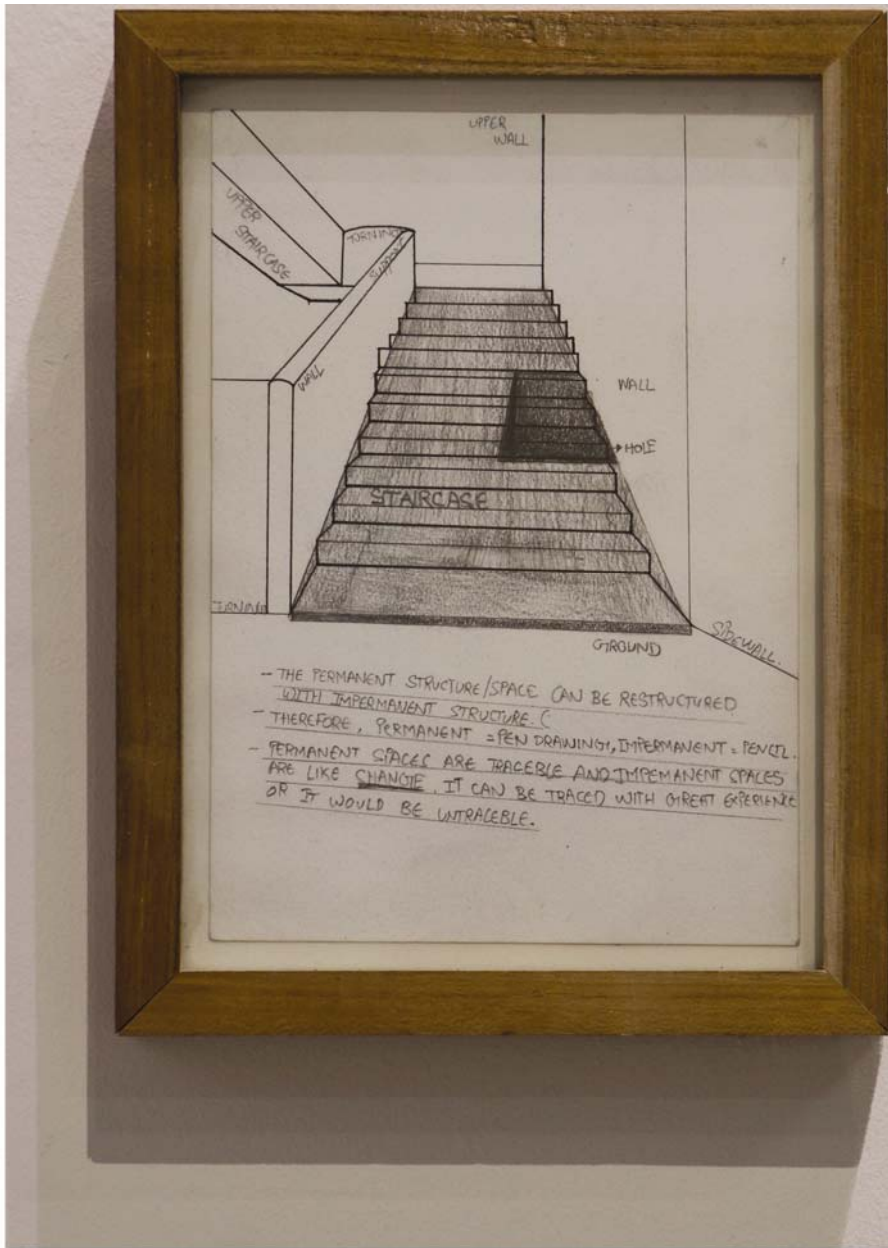 UPPER
WALL
UPPER
STAIRCASE
TURNING
SUPPORT
WALL
WALL
HOLE
STAIRCASE
TURNING
SIDEWALL.
GROUND
- THE PERMANENT STRUCTURE/SPACE CAN BE RESTRUCTURED
WITH IMPERMANENT STRUCTURE. (
- THEREFORE, PERMANENT = PEN DRAWING, IMPERMANENT = PENCIL.
- PERMANENT SPACES ARE TRACEBLE AND IMPEMANENT SPACES
ARE LIKE CHANGE. IT CAN BE TRACED WITH GREAT EXPERIENCE
OR IT WOULD BE UNTRACEBLE.